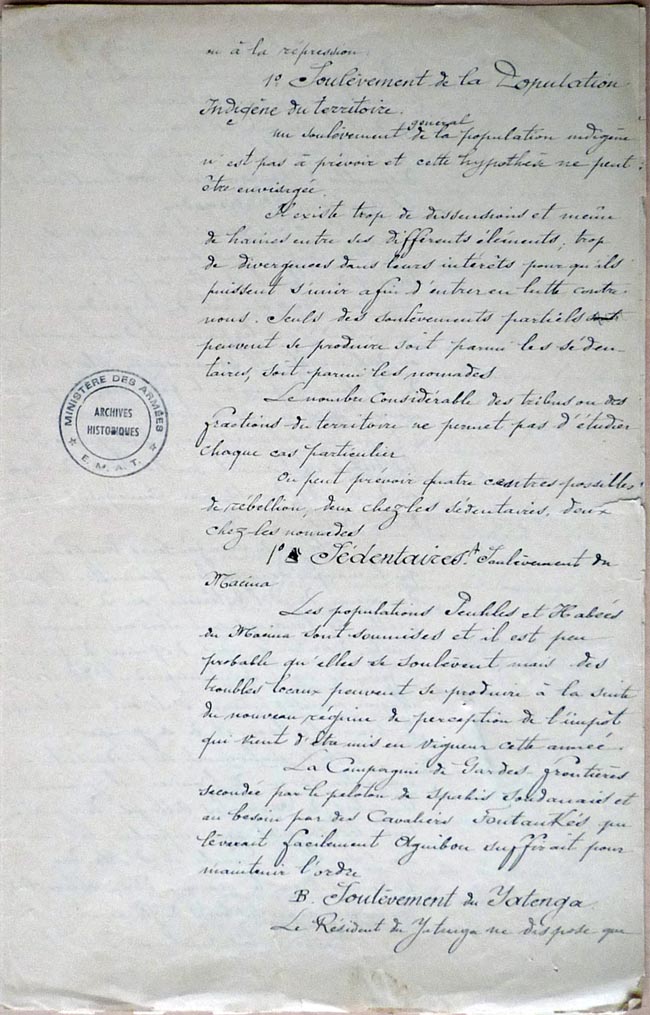 ou à la répression.
1º Soulèvement de la Population
Indigène du territoire.
général
un soulèvement de la population indigène
n'est pas à prévoir et cette hypothèse ne peut
être envisagée.
Il existe trop de dissensions et même
de haines entre ses différents éléments, trop
de divergences dans leurs intérêts pour qu'ils
puissent s'unir afin d'entrer en lutte contre
nous. Seuls des soulèvements partiels
peuvent se produire soit parmi les séden-
taires, soit parmi les nomades
Le nombre considérable des tribus ou des
fractions du territoire ne permet pas d'étudier
chaque cas particulier
On peut prévoir quatre centres possibles
de rébellion, deux chez les sédentaires, deux
chez les nomades
1º Sédentaires. Soulèvement du
Macina
Les populations Peuhles et Habées
du Macina sont soumises et il est peu
probable qu'elles se soulèvent mais des
troubles locaux peuvent se produire à la suite
du nouveau régime de perception de l'impôt
qui vient d'être mis en vigueur cette année.
La Compagnie de Gardes frontières
secondée par le peloton de spahis soudanais et
au besoin par des Cavaliers Toutankés que
lèverait facilement Aguibou suffirait pour
maintenir l'ordre
B. Soulèvement du Yatenga.
Le Résident du Yatenga ne dispose que
MINISTÈRE DES ARMÉES
ARCHIVES
HISTORIQUES
E. M. A. T.